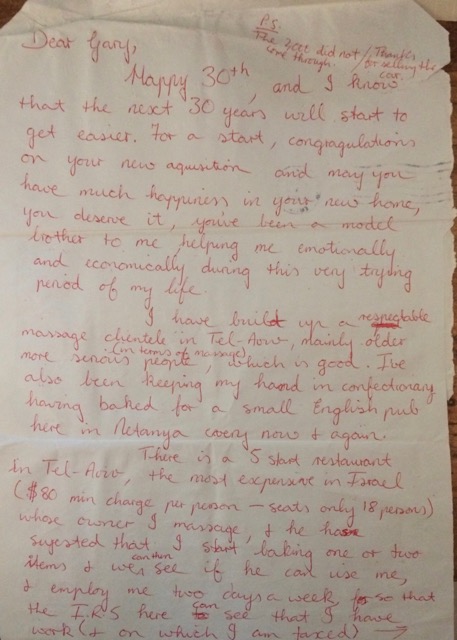 P.S.
The 300£ did not / Thanks
come through. / for selling the
car.
Dear Gary,
Happy 30th, and I know
that the next 30 years will start to
get easier. For a start, congragulations
on your new aquisition and may you
have much happiness in your new home,
you deserve it, you've been a model
brother to me helping me emotionally
and economically during this very trying
period of my life.
I have built up a respectable
massage clientele in Tel-Aviv, mainly older
more serious people (in terms of massage), which is good. I've
also been keeping my hand in confectionary
having baked for a small English pub
here in Netanya every now & again.
There is a 5 start restaurant
In Tel-Aviv, the most expensive in Israel
($80 min charge per person – seats only 18 persons)
whose owner I massage, & he has
sugested that I start baking one or two
items & we can see if he can use me,
& employ me two days a week so that
the I.R.S here can see that I have
work (& on which I am taxed) →